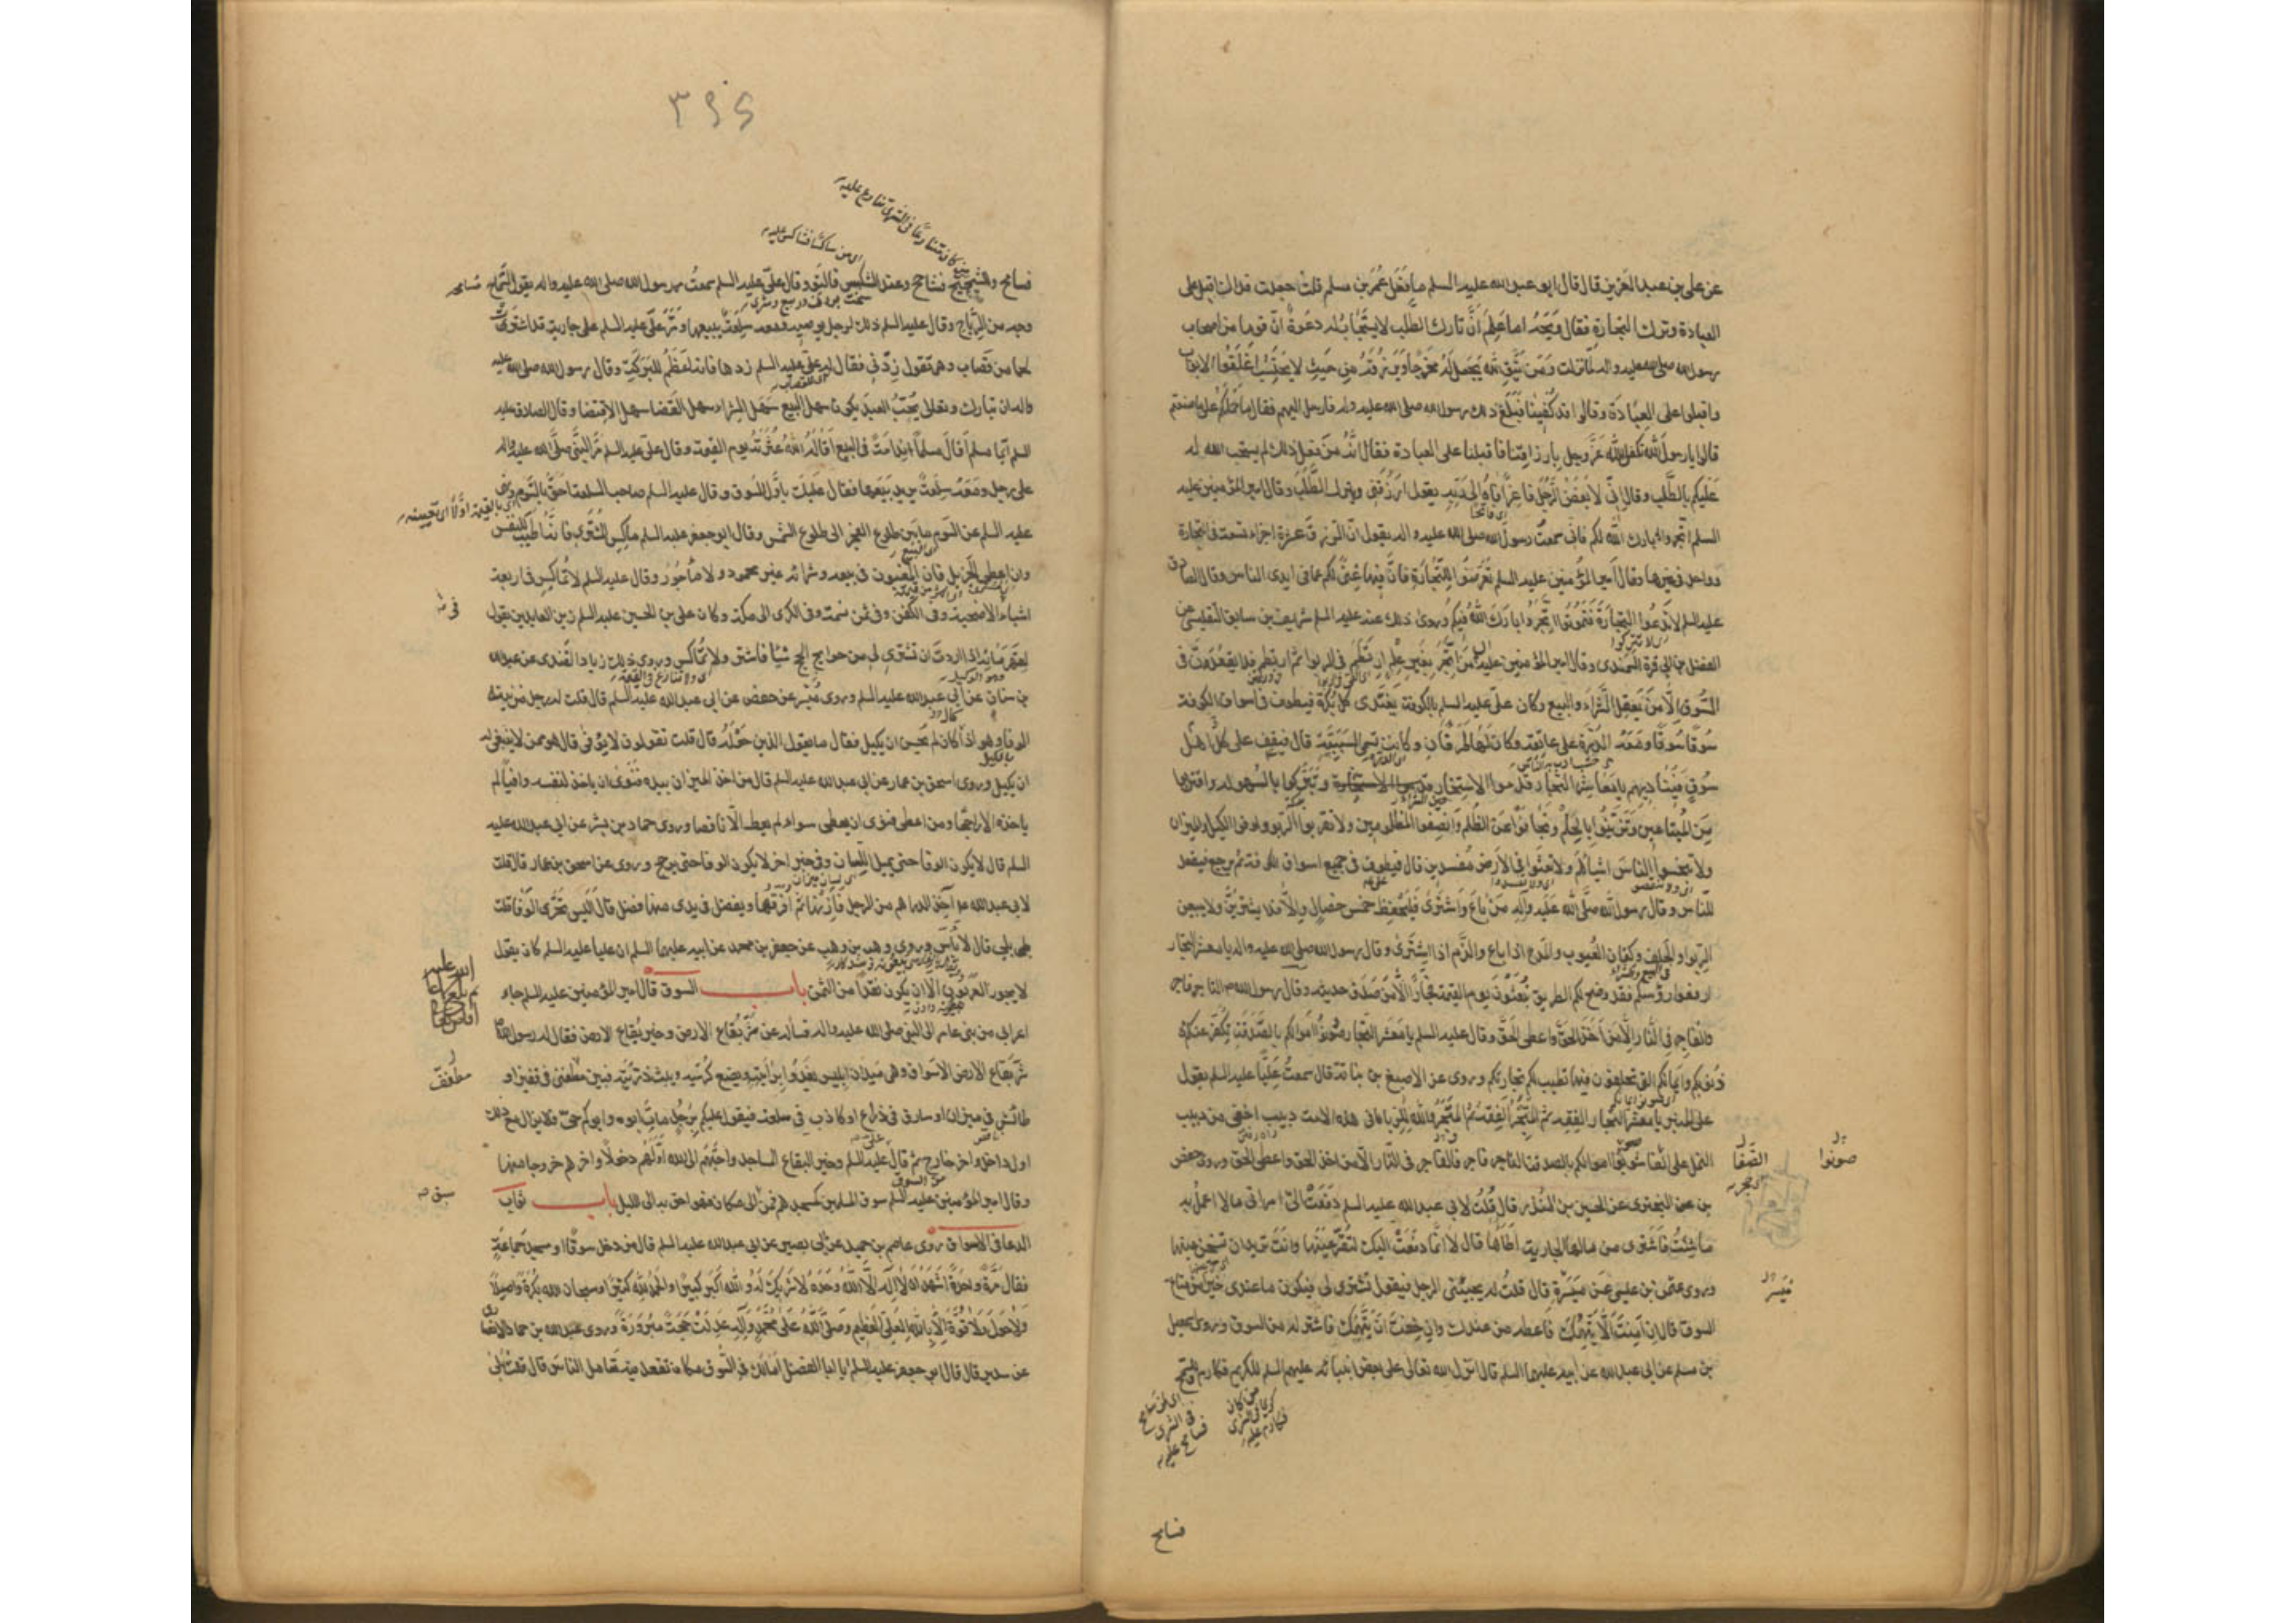 عن على بن عبد العزيز قال قال ابو عبد الله عليه السلم ما فعل عمر بن مسلم قلت جعلت فداك اقبل على
العبادة وترك التجارة فقال ويحه اما علم ان تارك الطلب لا يستجاب له دعوة ان قوما من اصحاب
رسول الله صلى الله عليه واله لما نزلت ومن يتق الله يجعل له مخرجا ويرزقه من حيث لا يحتسب اغلقوا الابواب
واقبلوا على العبادة وقالوا قد كفينا فبلغ ذلك رسول الله صلى الله عليه واله فارسل اليهم فقال ما حملكم على ما صنعتم
قالوا يا رسول الله تكفل الله عز وجل بارزاقنا فاقبلنا على العبادة فقال انه من فعل ذلك لم يستجب الله له
عليكم بالطلب وقال انى لابغض الرجل فاغرا فاه الى ربه يقول ارزقنى ويترك الطلب وقال امير المؤمنين عليه
السلم اتجروا بارك الله لكم فانى سمعت رسول الله صلى الله عليه واله يقول ان الرزق عشرة اجزاء تسعة فى التجارة
وواحد فى غيرها وقال امير المؤمنين عليه السلم تعرضوا للتجارة فان فيها غنى لكم عما فى ايدى الناس وقال الصادق
عليه السلم لا تدعوا التجارة فتهونوا اتجروا بارك الله فيكم وروى ذلك عنه عليه السلم شريف بن سابق التفليسى عن
الفضل بن ابى قرة السمندى وقال امير المؤمنين عليه السلم من اتجر بغير علم ارتطم فى الربوا ثم ارتطم فلا يقعدن فى
السوق الا من يعقل الشراء والبيع وكان على عليه السلم بالكوفة يغتدى كل بكرة فيطوف فى اسواق الكوفة
سوقا سوقا ومعه الدرة على عاتقه وكان لها طرفان وكانت تسمى السبيبة قال فيقف على كل اهل
سوق فيناديهم يا معاشر التجار قدموا الاستخارة وتبركوا بالسهولة واقتربوا
من المبتاعين وتزينوا بالحلم وتجافوا عن الظلم وانصفوا المظلومين ولا تقربوا الربوا واوفوا الكيل والميزان
ولا تبخسوا الناس اشياءهم ولا تعثوا فى الارض مفسدين قال فيطوف فى جميع اسواق الكوفة ثم يرجع فيقعد
للناس وقال رسول الله صلى الله عليه واله من باع واشترى فليحفظ خمس خصال والا فلا يشترين ولا يبيعن
الربوا والحلف وكتمان العيوب والمدح اذا باع والذم اذا اشترى وقال رسول الله صلى الله عليه واله يا معشر التجار
ارفعوا رؤسكم فقد وضح لكم الطريق تبعثون يوم القيمة فجارا الا من صدق حديثه وقال رسول الله ص التاجر فاجر
والفاجر فى النار الا من اخذ الحق واعطى الحق وقال عليه السلم يا معشر التجار صونوا اموالكم بالصدقة تكفر عنكم
ذنوبكم وايمانكم التى تحلفون فيها تطيب لكم تجارتكم وروى عن الاصبغ بن نباتة قال سمعت عليا عليه السلم يقول
على المنبر يا معشر التجار الفقه ثم المتجر الفقه ثم المتجر والله للربا فى هذه الامة دبيب اخفى من دبيب
النمل على الصفا صونوا اموالكم بالصدقة التاجر فاجر والفاجر فى النار الا من اخذ الحق واعطى الحق وروى حفص
بن عن البخترى عن الحسين بن المنذر قال قلت لابى عبد الله عليه السلم دفعت الى امراتى مالا اعمل به
ما شئت فاشترى من مالها الجارية اطاها قال لا انما دفعت اليك لتقر عينها وانت تريد ان تسخن عينها
وروى عثمن بن عيسى عن ميسر قال قلت له يجيئنى الرجل فيقول تشترى لى فيكون ما عندى خيرا من متاع
السوق قال ان امنت الا يتهمك فاعطه من عندك وان خفت ان يتهمك فاشتر له من السوق وروى اسمعيل
بن مسلم عن ابى عبد الله عن ابيه عليهما السلم قال انزل الله تعالى على بعض انبيائه عليهم السلم للكريم فكارم وللسمح
صونوا
الصفا
ميسر
فسامح
٣٩٤
فسامح وللشحيح فشاحح وعند الشكس فالتو وقال على عليه السلم سمعت رسول الله صلى الله عليه واله يقول السماح
وجه من الرباح وقال عليه السلم ذلك لرجل يوصيه ومعه سلعة يبيعها ومر على عليه السلم على جارية قد اشترت
لحما من قصاب وهى تقول زدنى فقال له على عليه السلم زدها فانه اعظم للبركة وقال رسول الله صلى الله عليه
واله ان الله تبارك وتعالى يحب العبد يكون سهل البيع سهل الشراء سهل القضاء سهل الاقتضاء وقال الصادق عليه
السلم ايما مسلم اقال مسلما ندامة فى البيع اقاله الله عثرته يوم القيمة وقال على عليه السلم مر النبى صلى الله عليه واله
على رجل ومعه سلعة يريد بيعها فقال عليك باول السوق وقال عليه السلم صاحب السلعة احق بالسوم ونهى
عليه السلم عن السوم ما بين طلوع الفجر الى طلوع الشمس وقال ابو جعفر عليه السلم ماكس المشترى فانه اطيب للنفس
وان اعطى الجزيل فان المغبون فى بيعه وشرائه غير محمود ولا مأجور وقال عليه السلم لا تماكس فى اربعة
اشياء الاضحية وفى الكفن وفى ثمن نسمة وفى الكرى الى مكة وكان على بن الحسين عليه السلم زين العابدين يقول
لقهرمانه اذا اردت ان تشترى لى من حوايج الحج شيئا فاشتر ولا تماكس وروى ذلك زياد القندى عن عبد الله
بن سنان عن ابى عبد الله عليه السلم وروى ميسر عن حفص عن ابى عبد الله عليه السلم قال قلت له رجل من نيته
الوفا وهو اذا كال لم يحسن ان يكيل فقال ما يقول الذين حوله قال قلت يقولون لا يوفى قال هو ممن لا ينبغى له
ان يكيل وروى اسحق بن عمار عن ابى عبد الله عليه السلم قال من اخذ الميزان بيده فنوى ان ياخذ لنفسه وافيا لم
ياخذه الا راجحا ومن اعطى فنوى ان يعطى سواء لم يعط الا ناقصا وروى حماد بن بشر عن ابى عبد الله عليه
السلم قال لا يكون الوفا حتى يميل اللسان وفى خبر اخر لا يكون الوفا حتى يرجح وروى عن اسحق بن عمار قال قلت
لابى عبد الله ع اخذ الدراهم من الرجل فازنها ثم افرقها ويفضل فى يدى منها فضل قال اليس تحرى الوفا قلت
بلى قال لا بأس وروى وهب بن وهب عن جعفر بن محمد عن ابيه عليهما السلم ان عليا عليه السلم كان يقول
لا يجوز العربون الا ان يكون نقدا من الثمن باب السوق قال امير المؤمنين عليه السلم جاء
اعرابى من بنى عامر الى النبى صلى الله عليه واله فسأله عن شر بقاع الارض وخير بقاع الارض فقال له رسول الله
شر بقاع الارض الاسواق وهى ميدان ابليس يغدوا برايته ويضع كرسيه ويبث ذريته فبين مطفف فى قفيز او
طائش فى ميزان او سارق فى ذراع او كاذب فى سلعة فيقول عليكم برجل مات ابوه وابوكم حى فلا يزال مع ذلك
اول داخل واخر خارج ثم قال عليه السلم وخير البقاع المساجد واحبهم الى الله اولهم دخولا واخرهم خروجا منها
وقال امير المؤمنين عليه السلم سوق المسلمين كمسجدهم فمن سبق الى مكان فهو احق به الى الليل باب ثواب
الدعا فى الاسواق روى عاصم بن حميد عن ابى بصير عن ابى عبد الله عليه السلم قال من دخل سوقا او مسجد جماعة
فقال مرة واحدة اشهد ان لا اله الا الله وحده لا شريك له والله اكبر كبيرا والحمد لله كثيرا وسبحان الله بكرة واصيلا
ولا حول ولا قوة الا بالله العلى العظيم وصلى الله على محمد واله عدلت حجة مبرورة وروى عبد الله بن حماد الانصارى
عن سدير قال قال ابو جعفر عليه السلم يا ابا الفضل اما لك فى السوق مكان تقعد فيه تعامل الناس قال قلت بلى
مطفف
سبق